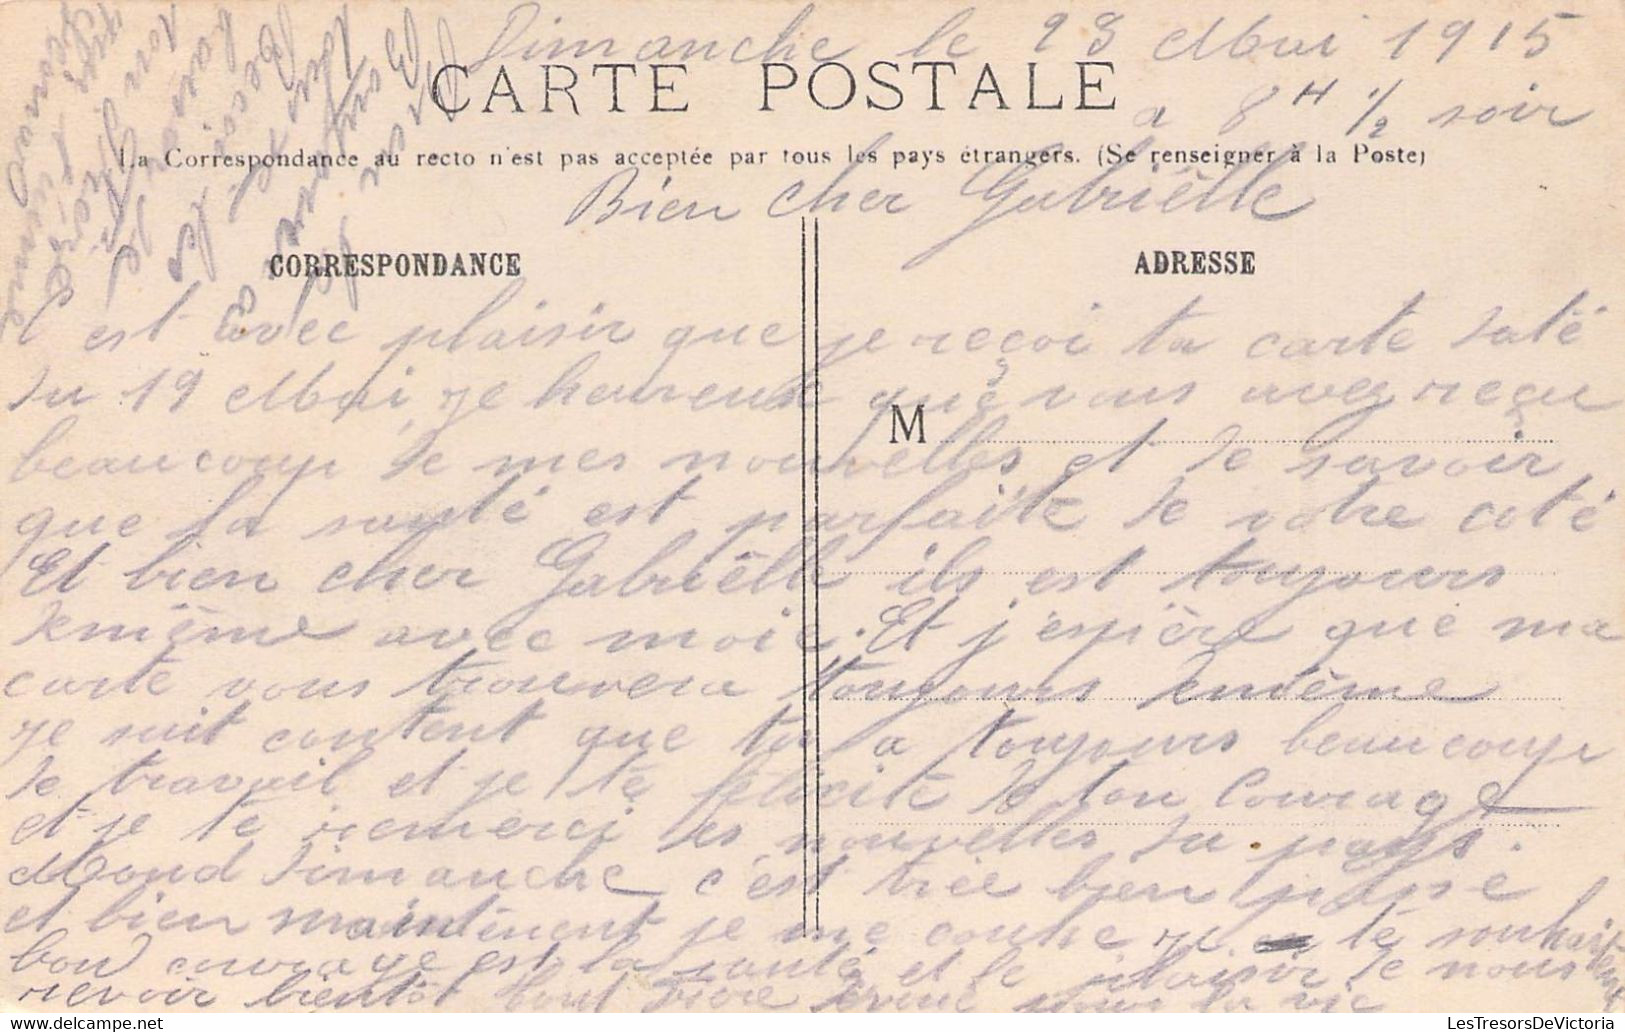 Dimanche le 23 Mai 1915
CARTE POSTALE
a 8 H 1/2 soir
La Correspondance au recto n'est pas acceptée par tous les pays étrangers. (Se renseigner à la Poste)
Bien cher Gabriëlle
CORRESPONDANCE
ADRESSE
C'est avec plaisir que je reçoi ta carte daté
du 19 Mai, je heureux que vous avez reçu
M
beaucoup de mes nouvelles et de savoir
que la santé est parfaite de votre coté
Et bien cher Gabriëlle ils est toujours
demëme avec moi. Et j'espère que ma
carte vous trouvera toujours demëme
je suit content que tu a toujours beaucoup
de travail et je te félicite de ton Courage
et je te remerci des nouvelles du pays.
Mond dimanche c'est trèe bien passé
et bien maintinent je me couhe je te souhait
bon courage est la santé et le plaisir de nous
revoir bientôt tout pour la vie
Bon
Reçoit
ton